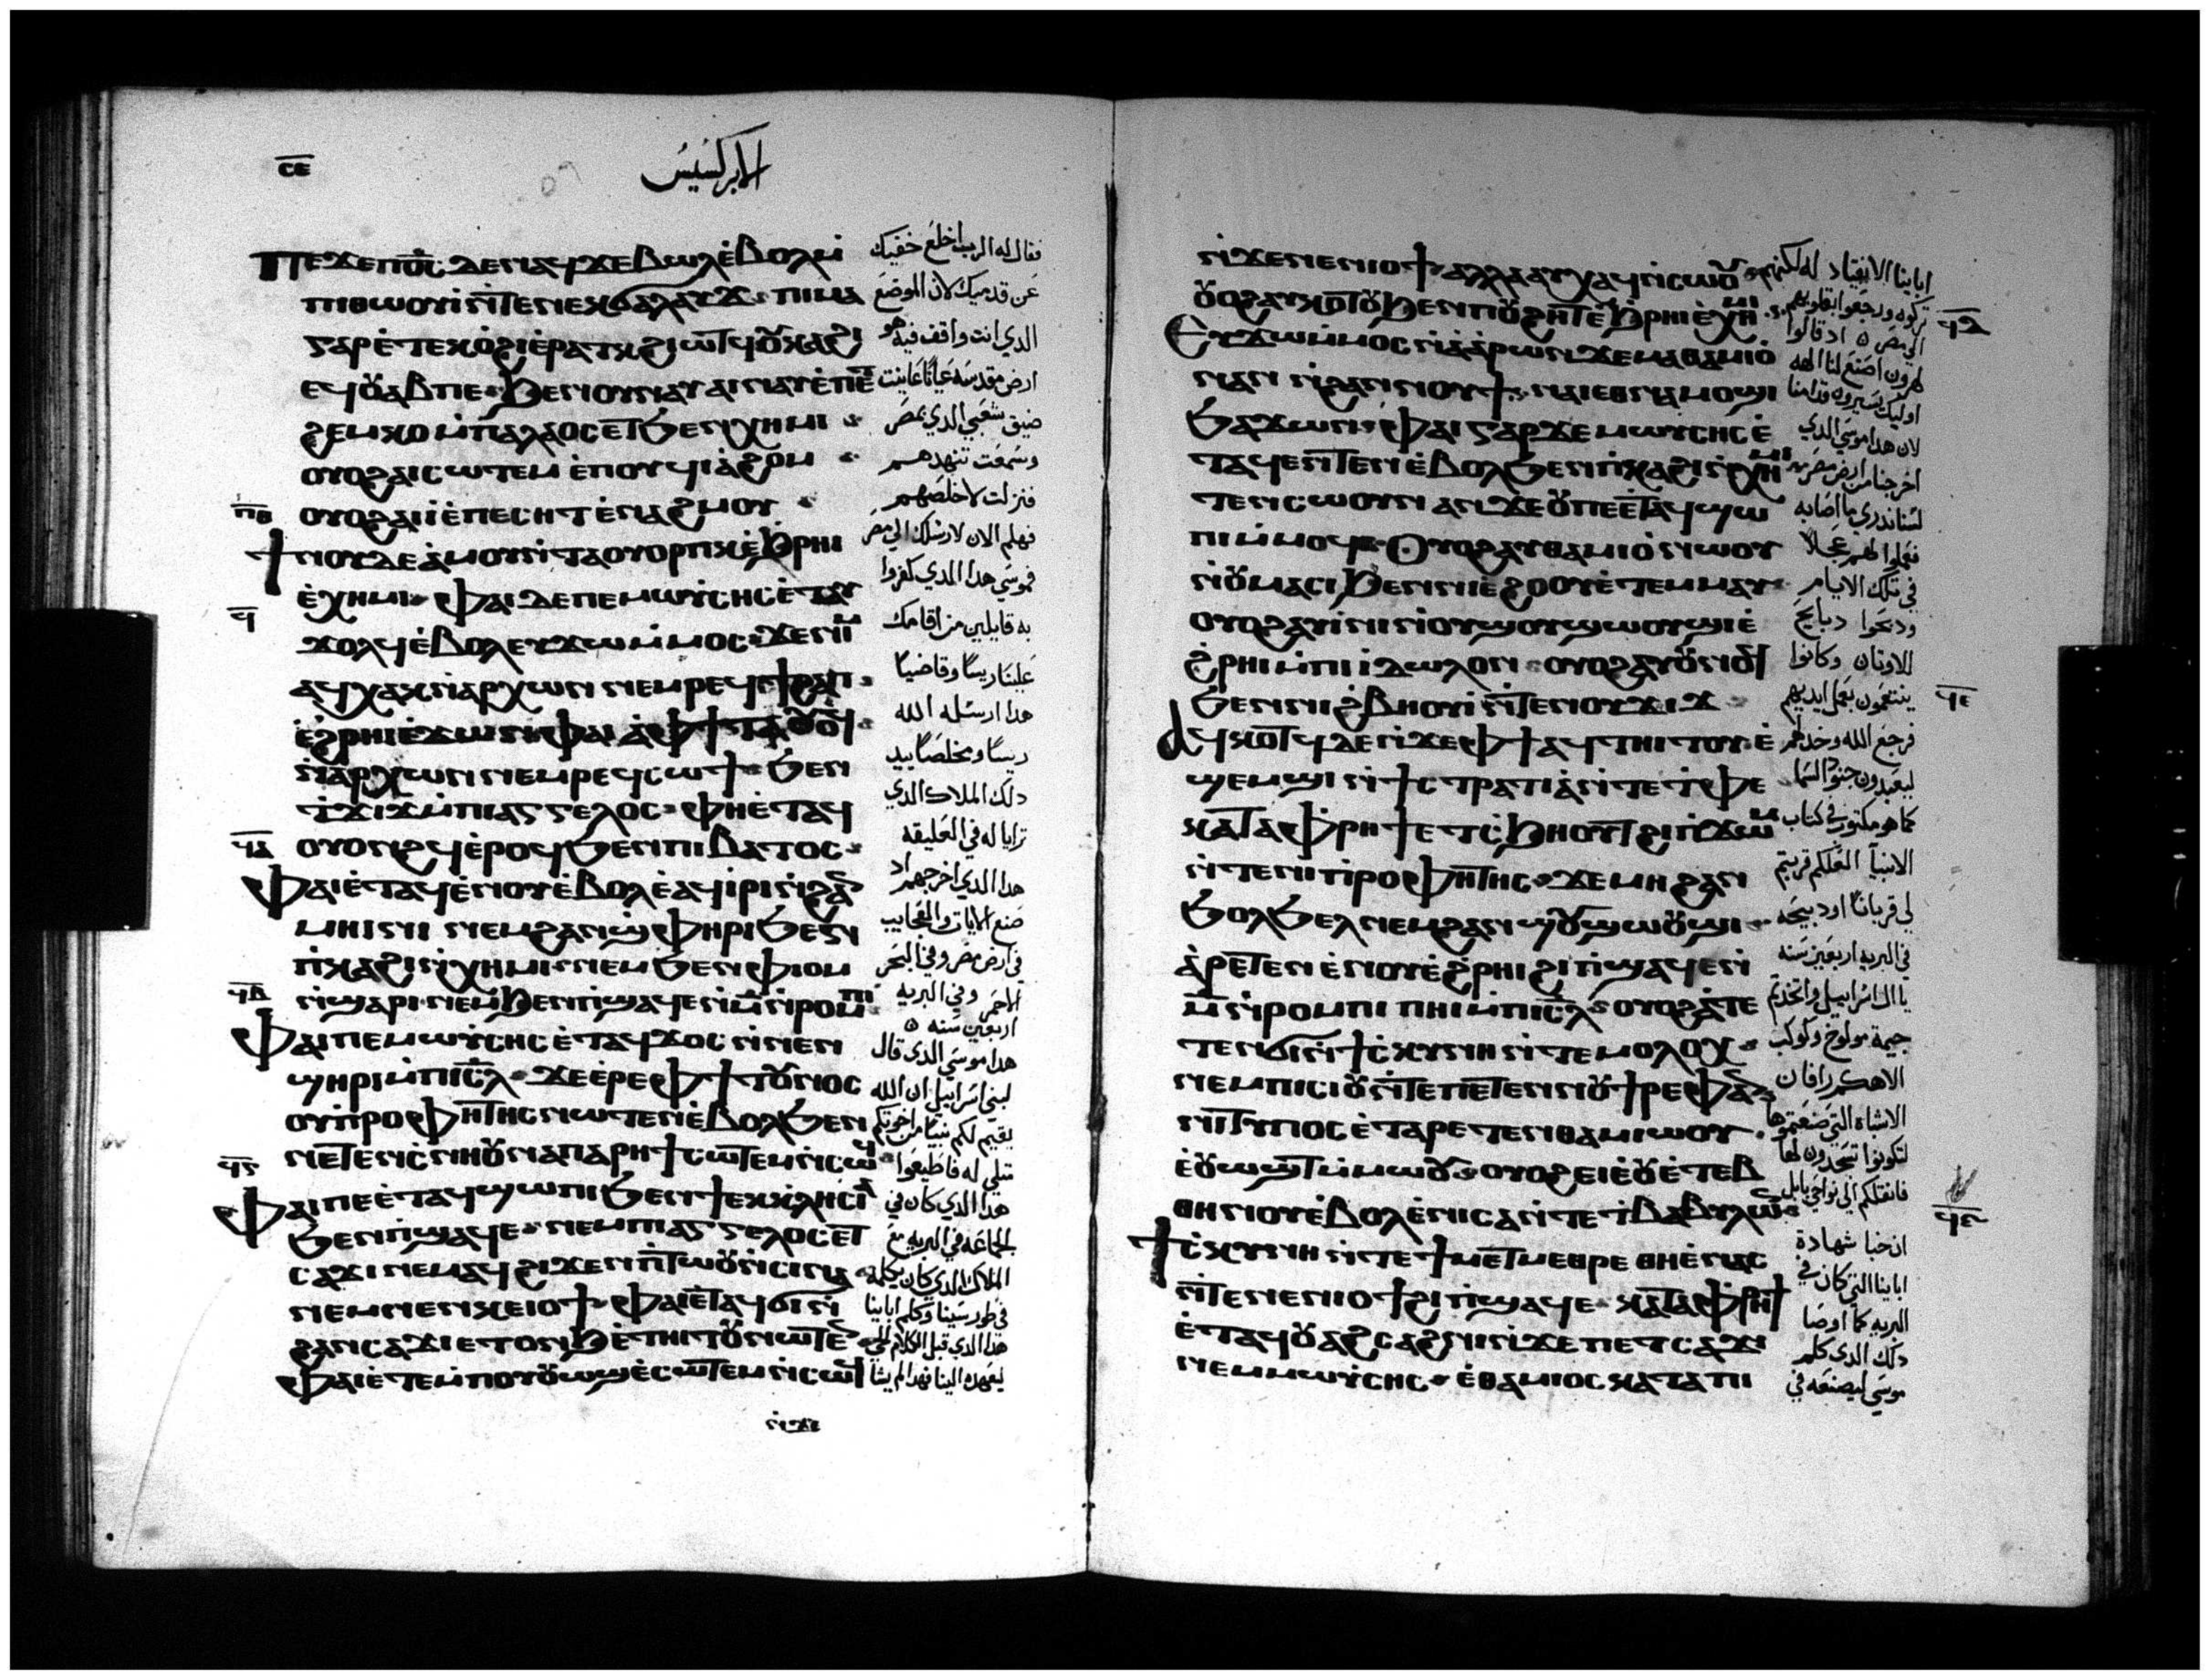 ⲥⲉ
الابركسيس
ⲡⲉϫⲉⲡⲟ̅ⲥ̅ ⲇⲉⲛⲁϥϫⲉⲃⲱⲗⲉ̀ⲃⲟⲗⲙ̀
ⲡⲓⲑⲱⲟⲩⲓ̀ⲛ̀ⲧⲉⲛⲉⲕϭⲁⲗⲁⲩϫ ⲡⲓⲙⲁ
ⲅⲁⲣⲉ̀ⲧⲉⲕⲟ̀ϩⲓⲉ̀ⲣⲁⲧⲕϩⲓⲱⲧϥⲟⲩⲕⲁϩⲓ
ⲉϥⲟⲩⲁⲃⲡⲉ ϧⲉⲛⲟⲩⲛⲁⲩ ⲁⲓⲛⲁⲩⲉ̀ⲡ
ϩⲉⲙⲕⲟ ⲙ̀ⲡⲁⲗⲁⲟⲥⲉⲧϧⲉⲛⲭⲏⲙⲓ
ⲟⲩⲟϩⲁⲓⲥⲱⲧⲉⲙ ⲉ̀ⲡⲟⲩϥⲓⲁ̀ϩⲟⲙ
ⲟⲩⲟϩⲁⲓⲓ̀ⲉ̀ⲡⲉⲥⲏⲧ ⲉ̀ⲛⲁϩⲙⲟⲩ
ϯⲛⲟⲩⲇⲉⲁ̀ⲙⲟⲩⲛ̀ⲧⲁⲟⲩⲟⲣⲡⲕⲉ̀ϧⲣⲏⲓ
ⲉ̀ⲭⲏⲙⲓ ⲫⲁⲓ ⲇⲉⲡⲉⲙⲱⲩⲥⲏⲥⲉ̀ⲧⲁⲩ
ϫⲟⲗϥⲉ̀ⲃⲟⲗⲉⲩϫⲱⲙ̀ⲙⲟⲥ ϫⲉⲛⲓⲙ
ⲁϥⲭⲁⲕⲛ̀ⲁⲣⲭⲱⲛ ⲛⲉⲙⲣⲉϥϯϩⲁⲡ
ⲉ̀ϩⲣⲏⲓⲉ̀ϫⲱⲛ ⲫⲁⲓ ⲁ̀ⲫϯ
ⲛ̀ⲁⲣⲭⲱⲛ ⲛⲉⲙⲣⲉϥⲥⲱϯ ϧⲉⲛ
ⲧ̀ϫⲓϫⲙ̀ⲡⲓⲁⲅⲅⲉⲗⲟⲥ ⲫⲏⲉ̀ⲧⲁϥ
ⲟⲩⲟⲛϩϥⲉ̀ⲣⲟϥϧⲉⲛⲡⲓⲃⲁⲧⲟⲥ
ⲫⲁⲓⲉ̀ⲧⲁϥⲉ̀ⲛⲟⲩⲉ̀ⲃⲟⲗⲉ̀ⲁϥⲓ̀ⲣⲓⲛ̀ϩⲁⲛ
ⲙⲏⲓⲛⲓ ⲛⲉⲙϩⲁⲛϣ̀ⲫⲏⲣⲓϧⲉⲛ
ⲡ̀ⲕⲁϩⲓⲛ̀ⲭⲏⲙⲓ ⲛⲉⲙϧⲉⲛⲫⲓⲟⲙ
ⲛ̀ϣⲁⲣⲓ ⲛⲉⲙϧⲉⲛⲡ̀ϣⲁϥⲉⲛ̀ⲙ̅ⲛ̀ⲣⲟⲙⲡⲓ
ⲫⲁⲓⲡⲉⲙⲱⲩⲥⲏⲥⲉ̀ⲧⲁϥϫⲟⲥⲛ̀ⲛⲉⲛ
ϣⲏⲣⲓⲙ̀ⲡⲓⲥ̅ⲗ̅ ϫⲉⲉ̀ⲣⲉⲫϯⲧⲟⲩⲛⲟⲥ
ⲟⲩⲡ̀ⲣⲟⲫⲏⲧⲏⲥⲛⲱⲧⲉⲛⲉ̀ⲃⲟⲗϧⲉⲛ
ⲛⲉⲧⲉⲛⲥ̀ⲛⲏⲟⲩⲙⲁⲡⲁⲣⲏϯⲥⲱⲧⲉⲙⲛ̀ⲥⲱϥ
ⲫⲁⲓⲡⲉⲉ̀ⲧⲁϥϣⲱⲡⲓϧⲉⲛϯⲉⲕⲕⲗⲏⲥⲓⲁ
ϧⲉⲛⲡ̀ϣⲁϥⲉ ⲛⲉⲙⲡⲓⲁⲅⲅⲉⲗⲟⲥⲉⲧ
ⲥⲁϫⲓ ⲛⲉⲙⲁϥϩⲓϫⲉⲛⲡ̀ⲧⲱⲟⲩⲛ̀ⲥⲓⲛⲁ
ⲛⲉⲙⲛⲉⲛⲕⲉⲓⲟϯ ⲫⲁⲓⲉ̀ⲧⲁϥϭⲓ ⲛ̀
ϩⲁⲛⲥⲁϫⲓ ⲉⲧⲟⲛϧ ⲉ̀ⲧⲏⲓⲧⲟⲩⲛⲱⲧⲉⲛ
ⲫⲁⲓⲉ̀ⲧⲉⲙ̀ⲡⲟⲩⲟⲩⲱϣⲉ̀ⲥⲱⲧⲉⲙⲛ̀ⲥⲱϥ
ⲛ̀ϫⲉ
ⲡⲑ
ϥ
ϥⲁ
ϥⲃ
فقال له الرب اخلع خفيك
عن قدميك لان الموضع
الدي انت واقف فيه هو
ارض مقدسه عيانا عاينت
ضيق شعبي الدي بمصر
وسمعت تنهدهم
فنزلت لاخلصهم
فهلم الان لارسلك الي مصر
فموسي هدا الدي كفروا
به قايلين من اقامك
علينا ريسا وقاضيا
هدا ارسله الله
ريسا ومخلصا بيد
دلك الملاك الدي
ترايا له في العليقه
هدا الدي اخرجهم اد
صنع الايات والعجايب
في ارض مصر وفي البحر
الاحمر وفي البريه
اربعين سنه
هدا موسي الدي قال
لبني اسراييل ان الله
يقيم لكم نبيا من اخوتكم
مثلي له فاطيعوا
هدا الدي كان في
الجماعه في البريه مع
الملاك الدي كان يكلمه
في طور سينا وكلم اباينا
هدا الدي قبل الكلام الحي
ⲛ̀ϫⲉⲛⲉⲛⲓⲟϯ ⲁⲗⲗⲁⲁⲩⲭⲁϥⲛ̀ⲥⲱⲟⲩ
ⲟⲩⲟϩⲁⲩⲕⲟⲧⲟⲩϧⲉⲛⲡⲟⲩϩⲏⲧⲉ̀ϧⲣⲏⲓⲉ̀ⲭⲏⲙⲓ
ⲉⲩϫⲱⲙ̀ⲙⲟⲥⲛ̀ⲁ̀ⲁ̀ⲣⲱⲛ ϫⲉⲙⲁⲑⲁⲙⲓⲟ̀
ⲛⲁⲛ ⲛ̀ϩⲁⲛⲛⲟⲩϯ ⲛⲁⲓⲉⲑⲛⲁⲙⲟϣⲓ
ϧⲁϫⲱⲛ ⲫⲁⲓ ⲅⲁⲣϫⲉⲙⲱⲩⲥⲏⲥⲉ̀
ⲧⲁϥⲉⲛⲧⲉⲛⲉ̀ⲃⲟⲗϧⲉⲛⲡ̀ⲕⲁϩⲓⲛ̀ⲭⲏⲙⲓ
ⲧⲉⲛⲥⲱⲟⲩⲛ ⲁⲛϫⲉⲟⲩⲡⲉⲉ̀ⲧⲁϥϣⲱ
ⲡⲓⲙ̀ⲙⲟϥ ⲟⲩⲟϩⲁⲩⲑⲁⲙⲓⲟ̀ⲛⲱⲟⲩ
ⲛ̀ⲟⲩⲙⲁⲥⲓ ϧⲉⲛⲛⲓⲉ̀ϩⲟⲟⲩⲉ̀ⲧⲉⲙⲙⲁⲩ
ⲟⲩⲟϩⲁⲩⲓ̀ⲛⲓⲛ̀ⲟⲩϣⲟⲩϣⲱⲟⲩϣⲓⲉ̀
ϩ̀ⲣⲏⲓⲙ̀ⲡⲓⲓ̀ⲇⲱⲗⲟⲛ ⲟⲩⲟϩⲁⲩⲟⲩⲛⲟϥ
ϧⲉⲛⲛⲓϩ̀ⲃⲏⲟⲩⲓ̀ⲛ̀ⲧⲉⲛⲟⲩϫⲓϫ
ⲁϥⲕⲟⲧϥⲇⲉⲛ̀ϫⲉⲫϯⲁϥⲧⲏⲓⲧⲟⲩⲉ̀
ϣⲉⲙϣⲓ ⲛ̀ϯⲥⲧⲣⲁⲧⲓⲁ̀ⲛ̀ⲧⲉⲧ̀ⲫⲉ
ⲕⲁⲧⲁⲫ̀ⲣⲏϯⲉⲧⲥ̀ϧⲏⲟⲩⲧϩⲓⲡ̀ϫⲱⲙ
ⲛ̀ⲧⲉⲛⲓⲡ̀ⲣⲟⲫⲏⲧⲏⲥ ϫⲉⲙⲏ ϩⲁⲛ
ϧⲟⲗϧⲉⲗ ⲛⲉⲙϩⲁⲛϣⲟⲩϣⲱⲟⲩϣⲓ
ⲁ̀ⲣⲉⲧⲉⲛ ⲉ̀ⲛⲟⲩⲉ̀ϩ̀ⲣⲏⲓ ϩⲓⲡ̀ϣⲁϥⲉⲛ̀
ⲙ̅ⲛ̀ⲣⲟⲙⲡⲓ ⲡⲏⲓⲙ̀ⲡⲓⲥ̅ⲗ̅ ⲟⲩⲟϩⲁ̀ⲧⲉ
ⲧⲉⲛϭⲓⲛ̀ϯⲥ̀ⲕⲩⲛⲏ ⲛ̀ⲧⲉⲙⲟⲗⲟⲭ
ⲛⲉⲙⲡⲓⲥⲓⲟⲩⲛ̀ⲧⲉⲡⲉⲧⲉⲛⲛⲟⲩϯⲣⲉⲫⲁⲛ
ⲛⲓⲧⲩⲡⲟⲥ ⲉ̀ⲧⲁⲣⲉⲧⲉⲛⲑⲁⲙⲓⲱⲟⲩ
ⲉ̀ⲟⲩⲱϣⲧⲙ̀ⲙⲱⲟⲩ ⲟⲩⲟϩⲉⲓⲉ̀ⲟⲩⲉ̀ⲧⲉⲃ
ⲑⲏⲛⲟⲩⲉ̀ⲃⲟⲗⲉ̀ⲛⲓⲥⲁⲛ̀ⲧⲉⲧ̀ⲃⲁⲃⲩⲗⲱⲛ
ϯⲥ̀ⲕⲩⲛⲏ ⲛ̀ⲧⲉϯⲙⲉⲧⲙⲉⲑⲣⲉ ⲑⲏⲉ̀ⲛⲁⲥ
ⲛ̀ⲧⲉⲛⲉⲛⲓⲟϯϩⲓ ⲡ̀ϣⲁϥⲉ ⲕⲁⲧⲁⲫ̀ⲣⲏϯ
ⲉ̀ⲧⲁϥⲟⲩⲁϩⲥⲁϩⲛⲓⲛ̀ϫⲉⲡⲉⲧⲥⲁϫⲓ
ⲛⲉⲙⲙⲱⲩⲥⲏⲥ ⲉ̀ⲑⲁⲙⲓⲟⲥⲕⲁⲧⲁⲡⲓ
اباينا الانقياد له لكنهم
تركوه ورجعوا بقلوبهم
الي مصر اد قالوا
لهرون اصنع لنا الهه
اوليك يسيرون قدامنا
لان هدا موسي الدي
اخرجنا من ارض مصر
لسنا ندري ما اصابه
فعملوا لهم عجلا
في تلك الايام
ودبحوا دبايح
للاوتان وكانوا
يتنعمون بعمل ايديهم
فرجع الله وخدلهم
ليعبدون جنود السما
كما هو مكتوب في كتاب
الانبيا العلكم قربتم
لي قربانا او دبيحه
في البريه اربعين سنه
يا ال اسراييل واتخدتم
خيمة مولوخ وكوكب
الاهكم رافان
الاشباه التي صنعتموها
لتكونوا تسجدون لها
فانقلكم الي نواحي بابل
ان خبا شهادة
اباينا التي كان في
البريه كما اوصا
دلك الدي كلم
موسي ليصنعه في
ϥⲇ
ϥⲉ